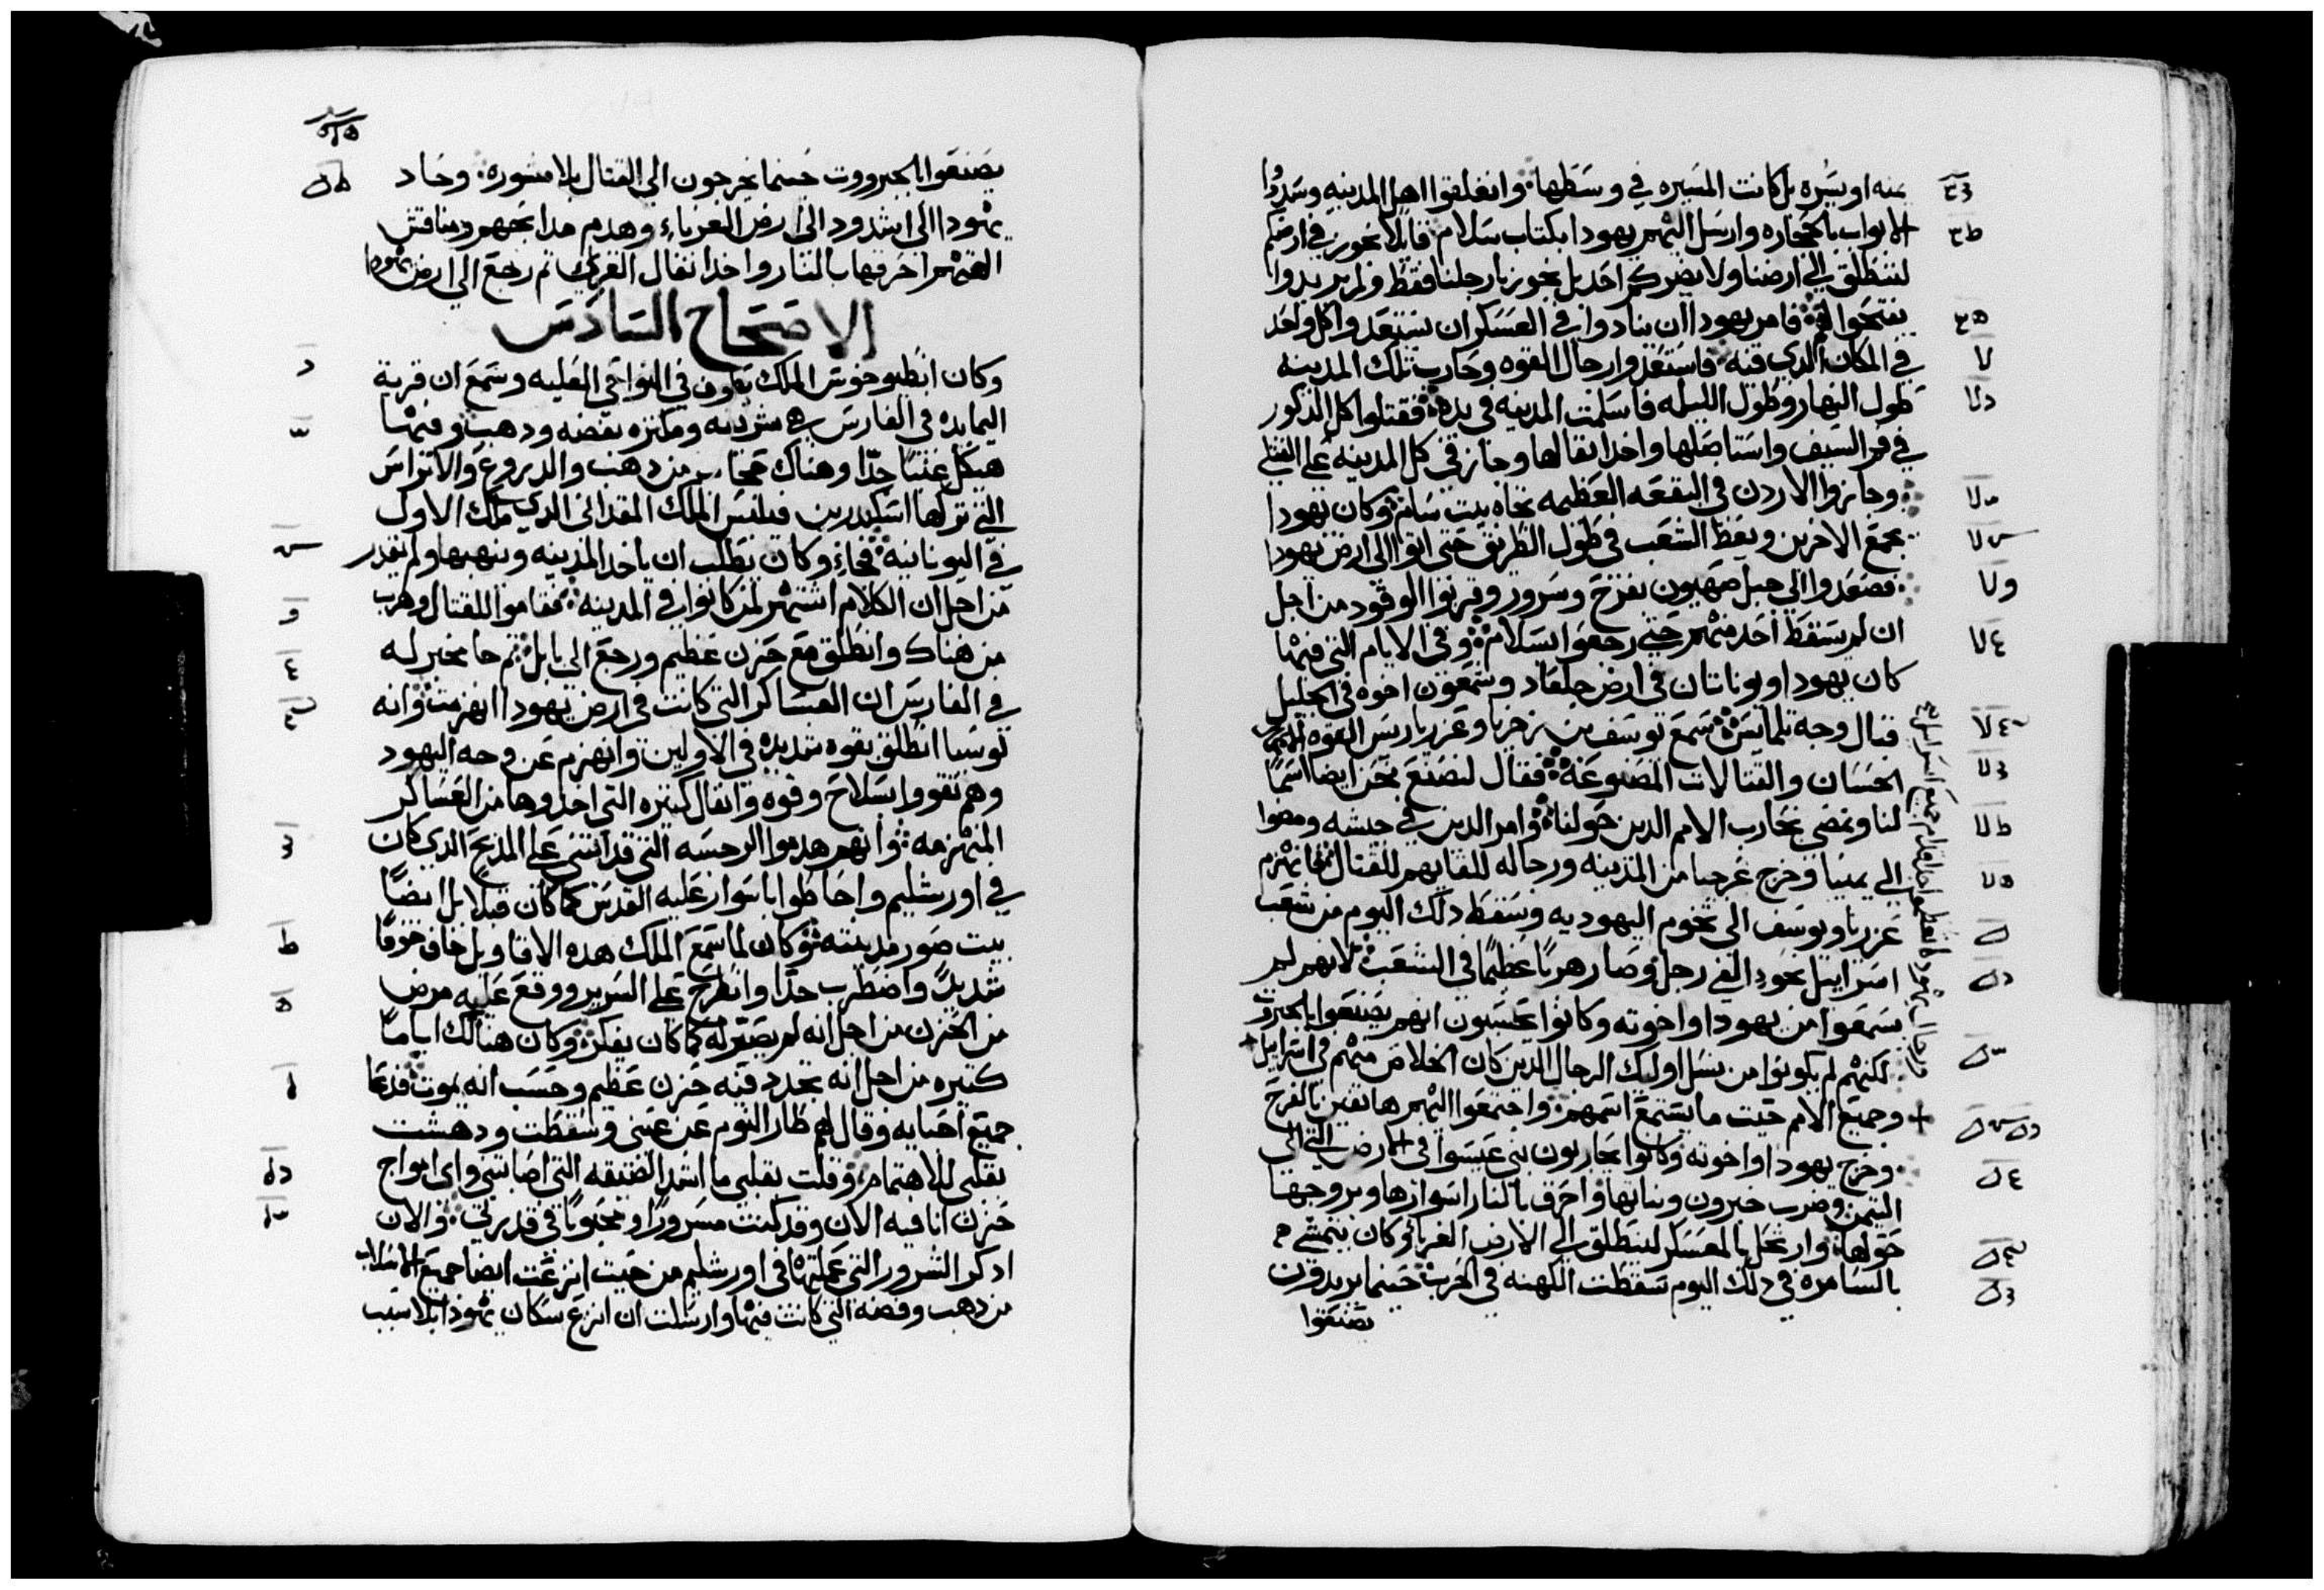 يمنه او يسره بل كانت المسيره في وسطها. وانغلقوا اهل المدينه وسدوا
الابواب بالحجاره وارسل اليهم يهودا بكتاب سلام قايلا نجوز في ارضكم
لننطلق الي ارضنا ولا يضركم احد بل نجوز بارجلنا فقط ولم يريدوا
يفتحوا لهم فامر يهودا ان ينادوا في العسكر ان يستعدوا كل واحد
في المكان الدي فيه. فاستعدوا رجال القوه وحارب تلك المدينه
طول النهار وطول الليله فاسلمت المدينه في يده فقتلوا كل الذكور
في فم السيف واستاصلها واخد انفالها وجاز في كل المدينه علي القتلي
وجازوا الاردن في البقعه العظيمه تجاه بيت سان وكان يهودا
يجمع الاخرين ويعظ الشعب في طول الطريق حتي اتوا الي ارض يهودا
فصعدوا الي جبل صهيون بفرح وسرور وقربوا الوقود من اجل
ان لم يسقط احد منهم حتي رجعوا بسلام وفي الايام التي فيها
كان يهودا ويوناتان في ارض جلعاد وشمعون اخوه في الجليل
قبال وجه تلمايس سمع يوسف بن زخريا وعزريا ريس القوه
الحسان والقتالات المصنوعه فقال لنصنع نحن ايضا اسما
لنا ونمضي نحارب الامم الدين حولنا وامر الدين في جيشه ومضوا
الي يمنيا وخرج غرجيا من المدينه ورجاله للقايهم للقتال فانهزم
عزريا ويوسف الي تخوم اليهوديه وسقط دلك اليوم من شعب
اسراييل نحو الفي رجل وصار هربا عظيما في الشعب لانهم لم
يسمعوا من يهودا واخوته وكانوا يحسبون انهم يصنعوا بالجبروت
لكنهم لم يكونوا من نسل اوليك الرجال الدين كان الخلاص منهم في اسراييل
ورجال يهودا تعظموا جدا قدام جميع اسراييل
وجميع الامم حيت ما يستمع اسمهم. واجتمعوا اليهم هاتفين بالفرح
وخرج يهودا واخوته وكانوا يحاربون بني عيسوا في الارض التي الي
التيمن وضرب خبرون وبناتها واحرق بالنار اسوارها وبروجها
حولها وارتحل بالمعسكر لينطلق الي الارض الغربا وكان يتمشي
بالسامره في دلك اليوم سقطت الكهنه في الحرب حينما يريدون
يصنعوا
يصنعوا بالجبرووت حينما يخرجون الي القتال بلا مشوره. وحاد
يهودا الي اشدود الي ارض الغرباء وهدم مدابحهم ومناقش
الهتهم احرقها بالنار واخد انفال القري ثم رجع الي ارض يهودا
الاصحاح السادس
وكان انطيوخوس الملك يطوف في النواحي العليه وسمع ان قرية
اليمايده في الفارس هي شريفه ومكتره بفضه ودهب وفيها
هيكل غنيا جدا وهناك من دهب والدروع والاتراس
التي تركها اسكندر بن فيلبس الملك المقداني الدي ملك الاول
في اليونانيه فجاء وكان يطلب ان ياخد المدينه وينهبها ولم يقدر
من اجل ان الكلام اشتهر لمن كانوا في المدينه فقاموا للقتال وهرب
من هناك وانطلق مع حزن عظيم ورجع الي بابل. ثم جا مخبر له
في الفارس ان العساكر التي كانت في ارض يهودا انهزمت وانه
لوسيا انطلق بقوه شديده في الاولين وانهزم عن وجه اليهود
وهم تقووا بسلاح وقوه وانفال كتيره التي اخدوها من العساكر
المنهزمه وانهم هدموا الرجسه التي قد انشي علي المدبح الدي كان
في اورشليم واحاطوا باسوار عليه القدس كما كان قبلا بل ايضا
بيت صور مدينته وكان لما سمع الملك هده الاقاويل خاف خوفا
شديدا واضطرب جدا وانطرح علي السرير ووقع عليه مرض
من الحزن من اجل انه لم يصير له كما كان يفكر وكان هنالك اياما
كتيره من اجل انه تجدد فيه حزن عظيم وحسب انه يموت فدعا
جميع احبايه وقال لهم طار النوم عن عيني وسقطت ودهشت
بقلبي للاهتمام وقلت بقلبي ما اشد الضيقه التي اصابتني واي امواج
حزن انا فيه الان وقد كنت مسرورا ومحبوبا في قدرتي. والان
ادكر الشرور التي عملتها في اورشليم من حيت انزعت ايضا جميع الاسلاب
من دهب وفضه التي كانت فيها وارسلت ان انزع سكان يهودا بلا سبب